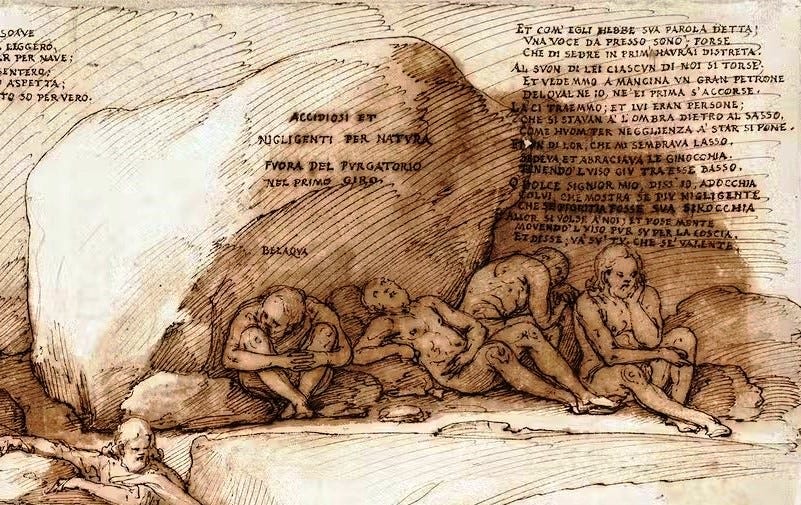 SOAVE
LEGGERO,
R PER NAVE;
SENTERO;
ASPETTA;
TO SO PER VERO.
ACCIDIOSI ET
NIGLIGENTI PER NATVRA
FVORA DEL PVRGATORIO
NEL PRIMO GIRO.
BELAQVA
ET COM' EGLI HEBBE SVA PAROLA DETTA;
VNA VOCE DA PRESSO SONO'; FORSE
CHE DI SEDRE IN PRIM' HAVRAI DISTRETA.
AL SVON DI LEI CIASCVN DI NOI SI TORSE;
ET VEDEMMO A MANCINA VN GRAN PETRONE
DEL QVAL NE IO, NE' EI PRIMA S' ACCORSE.
LA CI TRAEMMO; ET IVI ERAN PERSONE;
CHE SI STAVAN A' L'OMBRA DIETRO AL SASSO,
COME HVOM PER NEGGLIENZA A' STAR SI PONE.
DI LOR, CHE MI SEMBRAVA LASSO.
SEDEVA ET ABRACIAVA LE GINOCCHIA.
TENENDO'L VISO GIV TRA ESSE BASSO.
O DOLCE SIGNIOR MIO, DISS' IO, ADOCCHIA
COLVI, CHE MOSTRA SE PIV NIGLIGENTE
CHE SE FOSSE SVA SIROCCHIA
ALLOR SI VOLSE A' NOI; ET POSE MENTE
MOVENDO'L VISO PVR SV PER LA COSCIA.
ET DISSE; VA' SV' TV, CHE SE' VALENTE.